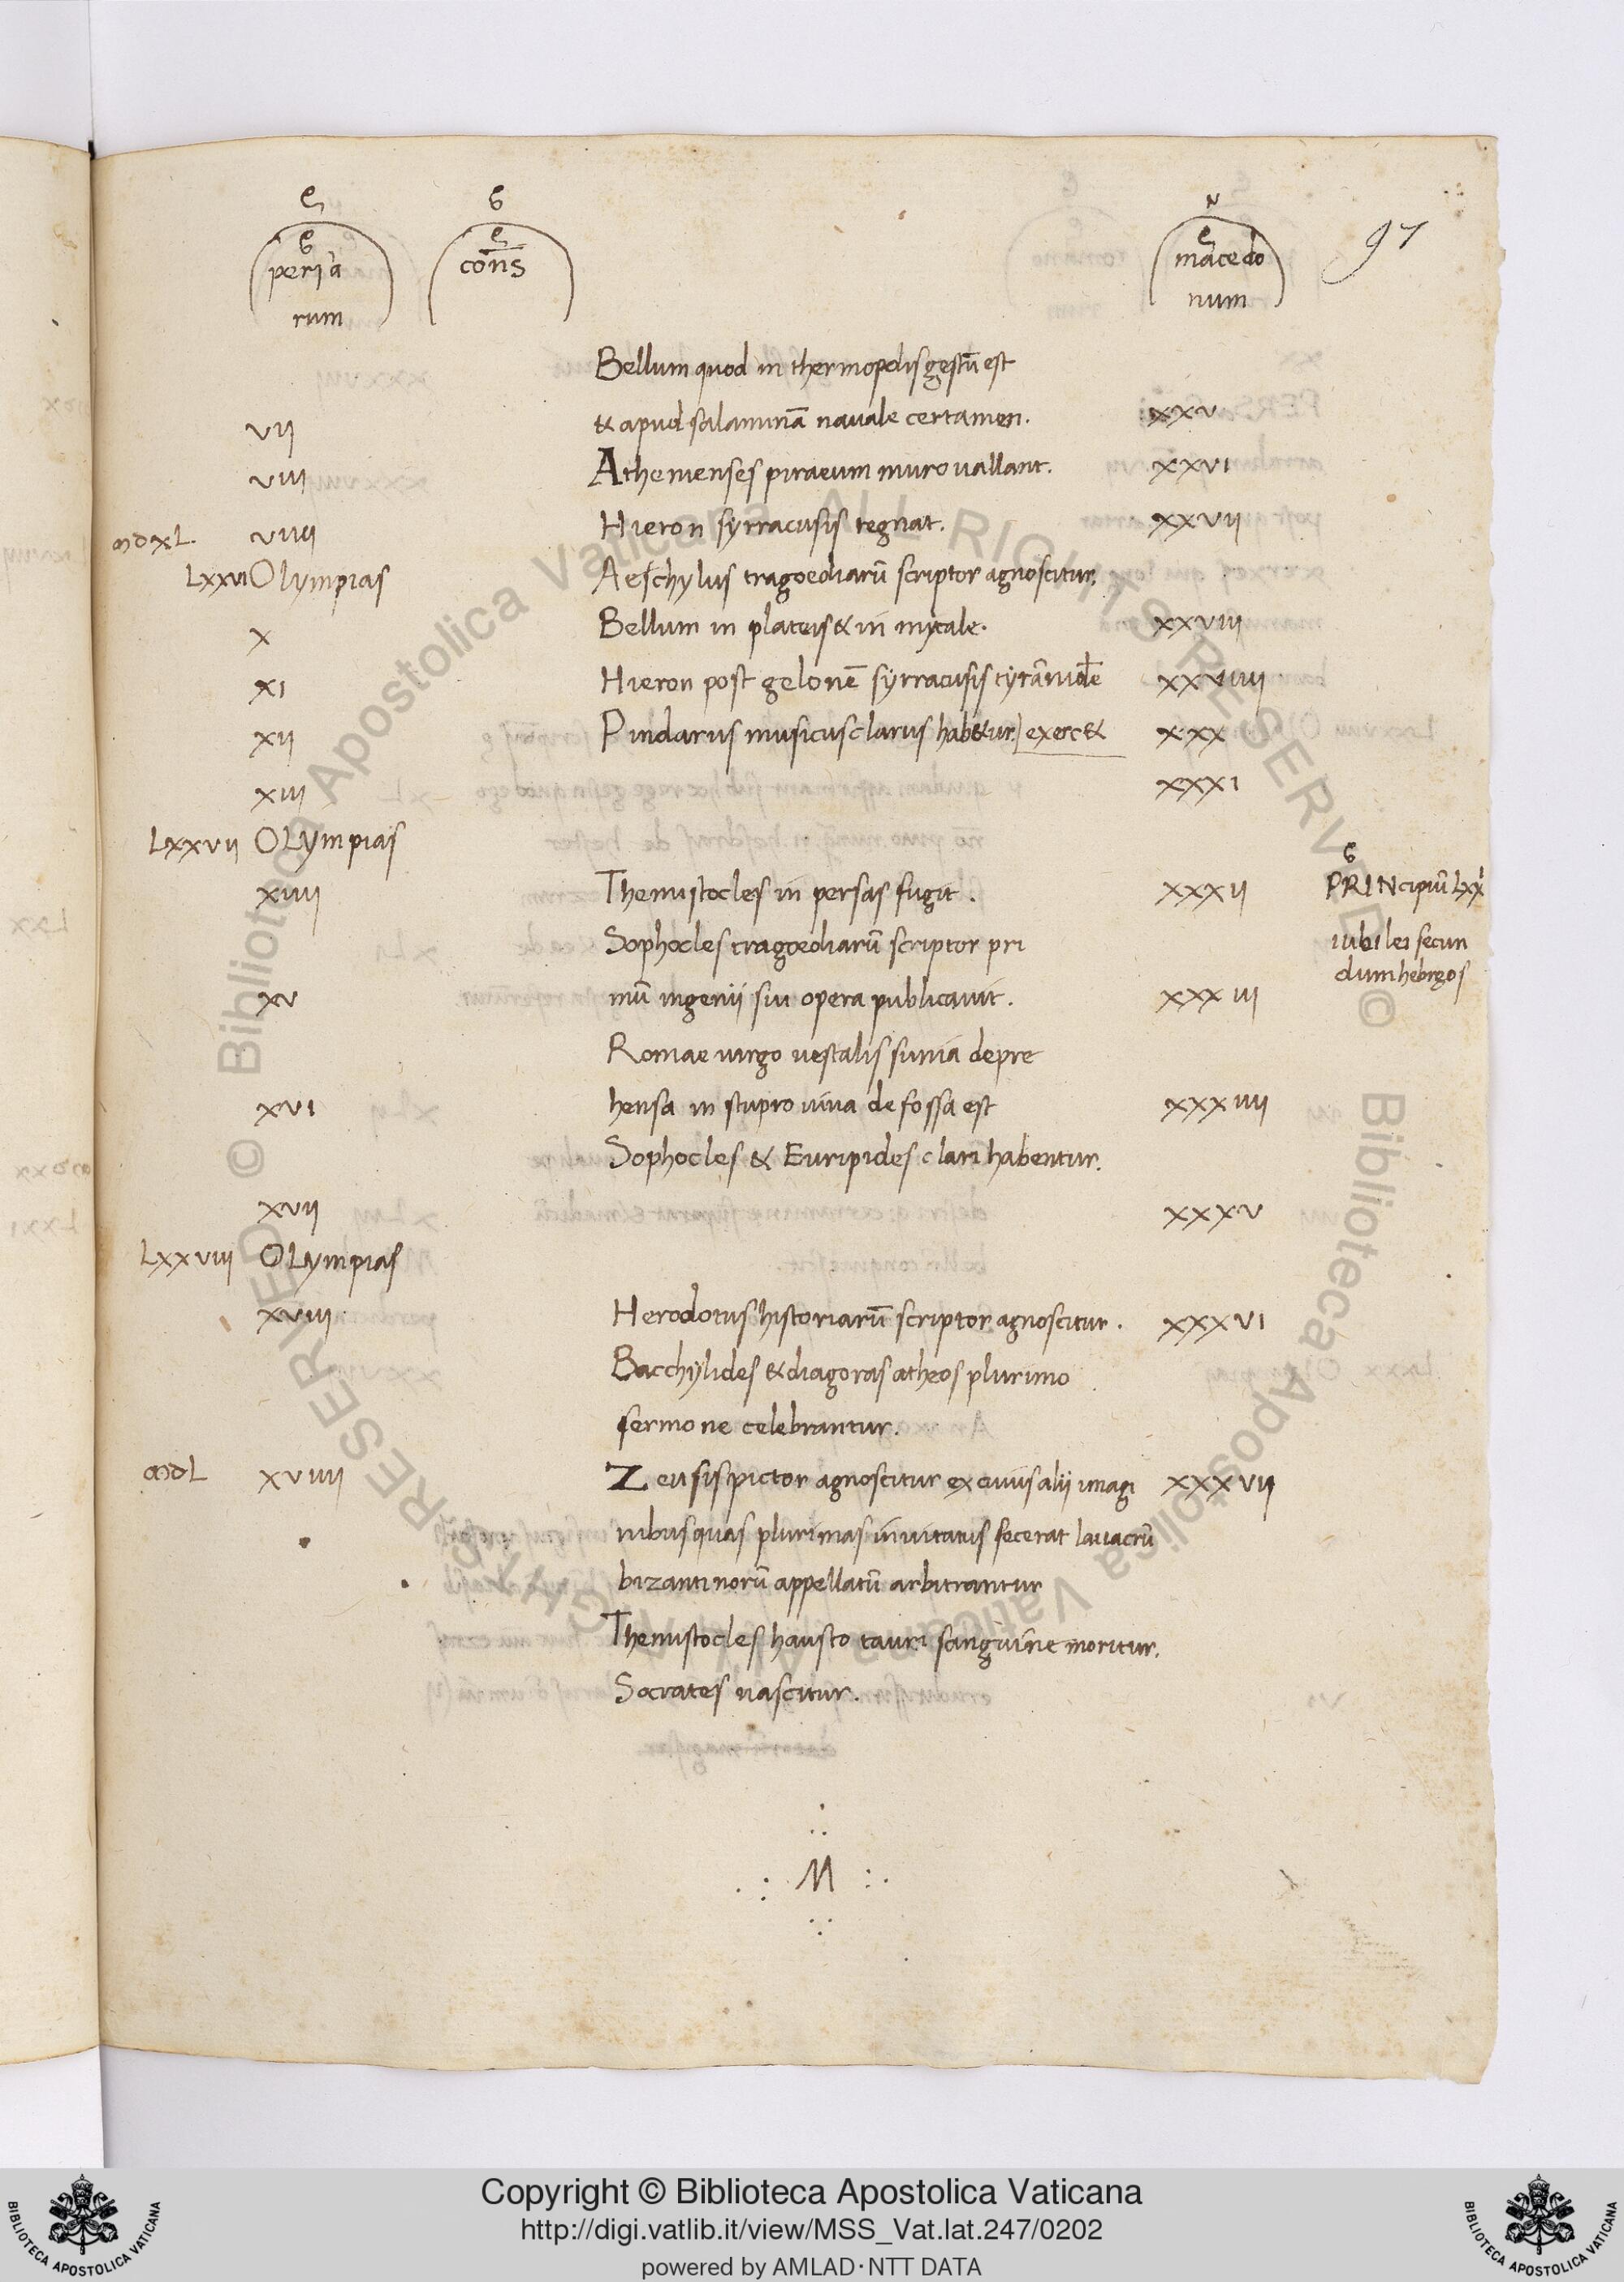 e e cons macedo 97
peria num
rum
Bellum quod in thermopolis gestũ est
VII & apud salaminã nauale certamen. XXV
VIII Athenienses piraeum muro uallant. XXVI
VIIII Hieron syrracusis regnat. XXVII
LXXVI Olympias Aeschylus tragoediarũ scriptor agnoscitur.
X Bellum in plateis & in mycale. XXVIII
XI Hieron post gelonẽ syrracusis tyrãnidẽ XXVIIII
XII Pindarus musicus clarus hab&ur. exerc& XXX
XIII XXXI
LXXVII OLympias
XIIII Themistocles in persas fugit. XXXII PRINcipiũ LXXI
Sophocles tragoediarũ scriptor pri iubilei secun
dum hebreos
XV mũ ingenii sui opera publicauit. XXXIII
Romae uirgo uestalis sunia depre
XVI hensa in stupro uiua defossa est XXXIIII
Sophocles & Euripides clari habentur.
XVII XXXV
LXXVIII OLympias
XVIII Herodotus historiarũ scriptor agnoscitur. XXXVI
Bacchylides & diagoras atheos plurimo
sermone celebrantur.
XVIIII Zeusis pictor agnoscitur ex cuius alii imagi XXXVII
nibus quas plurimas inuitatus fecerat lauacrũ
bizantinorũ appellatũ arbitrantur
Themistocles hausto tauri sanguine moritur.
Socrates nascitur.
M
© Biblioteca Apostolica Vaticana ALL RIGHTS RESERVED
© Biblioteca Apostolica Vaticana ALL RIGHTS RESERVED
Copyright © Biblioteca Apostolica Vaticana
http://digi.vatlib.it/view/MSS_Vat.lat.247/0202
powered by AMLAD·NTT DATA
BIBLIOTECA APOSTOLICA VATICANA
BIBLIOTECA APOSTOLICA VATICANA